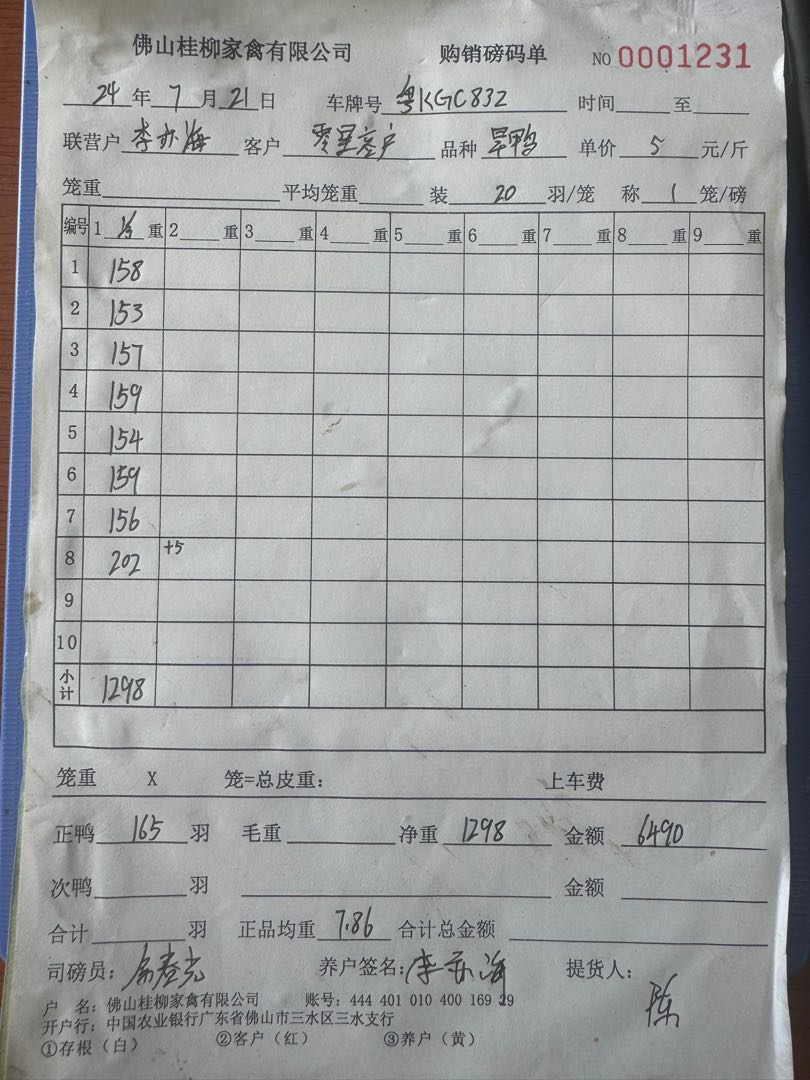 佛山桂柳家禽有限公司 购销磅码单 NO 0001231
24 年 7 月 21 日 车牌号 粤KGC832 时间 至
联营户 李亦海 客户 零星客户 品种 旱鸭 单价 5 元/斤
笼重 平均笼重 装 20 羽/笼 称 1 笼/磅
编号 1 重 2 重 3 重 4 重 5 重 6 重 7 重 8 重 9 重
1 158
2 153
3 157
4 159
5 154
6 159
7 156
8 202 +5
9
10
小计 1298
笼重 X 笼=总皮重: 上车费
正鸭 165 羽 毛重 净重 1298 金额 6490
次鸭 羽 金额
合计 羽 正品均重 7.86 合计总金额
司磅员: 养户签名: 李亦海 提货人: 陈
户 名: 佛山桂柳家禽有限公司 账号: 444 401 010 400 169 29
开户行: 中国农业银行广东省佛山市三水区三水支行
①存根（白） ②客户（红） ③养户（黄）